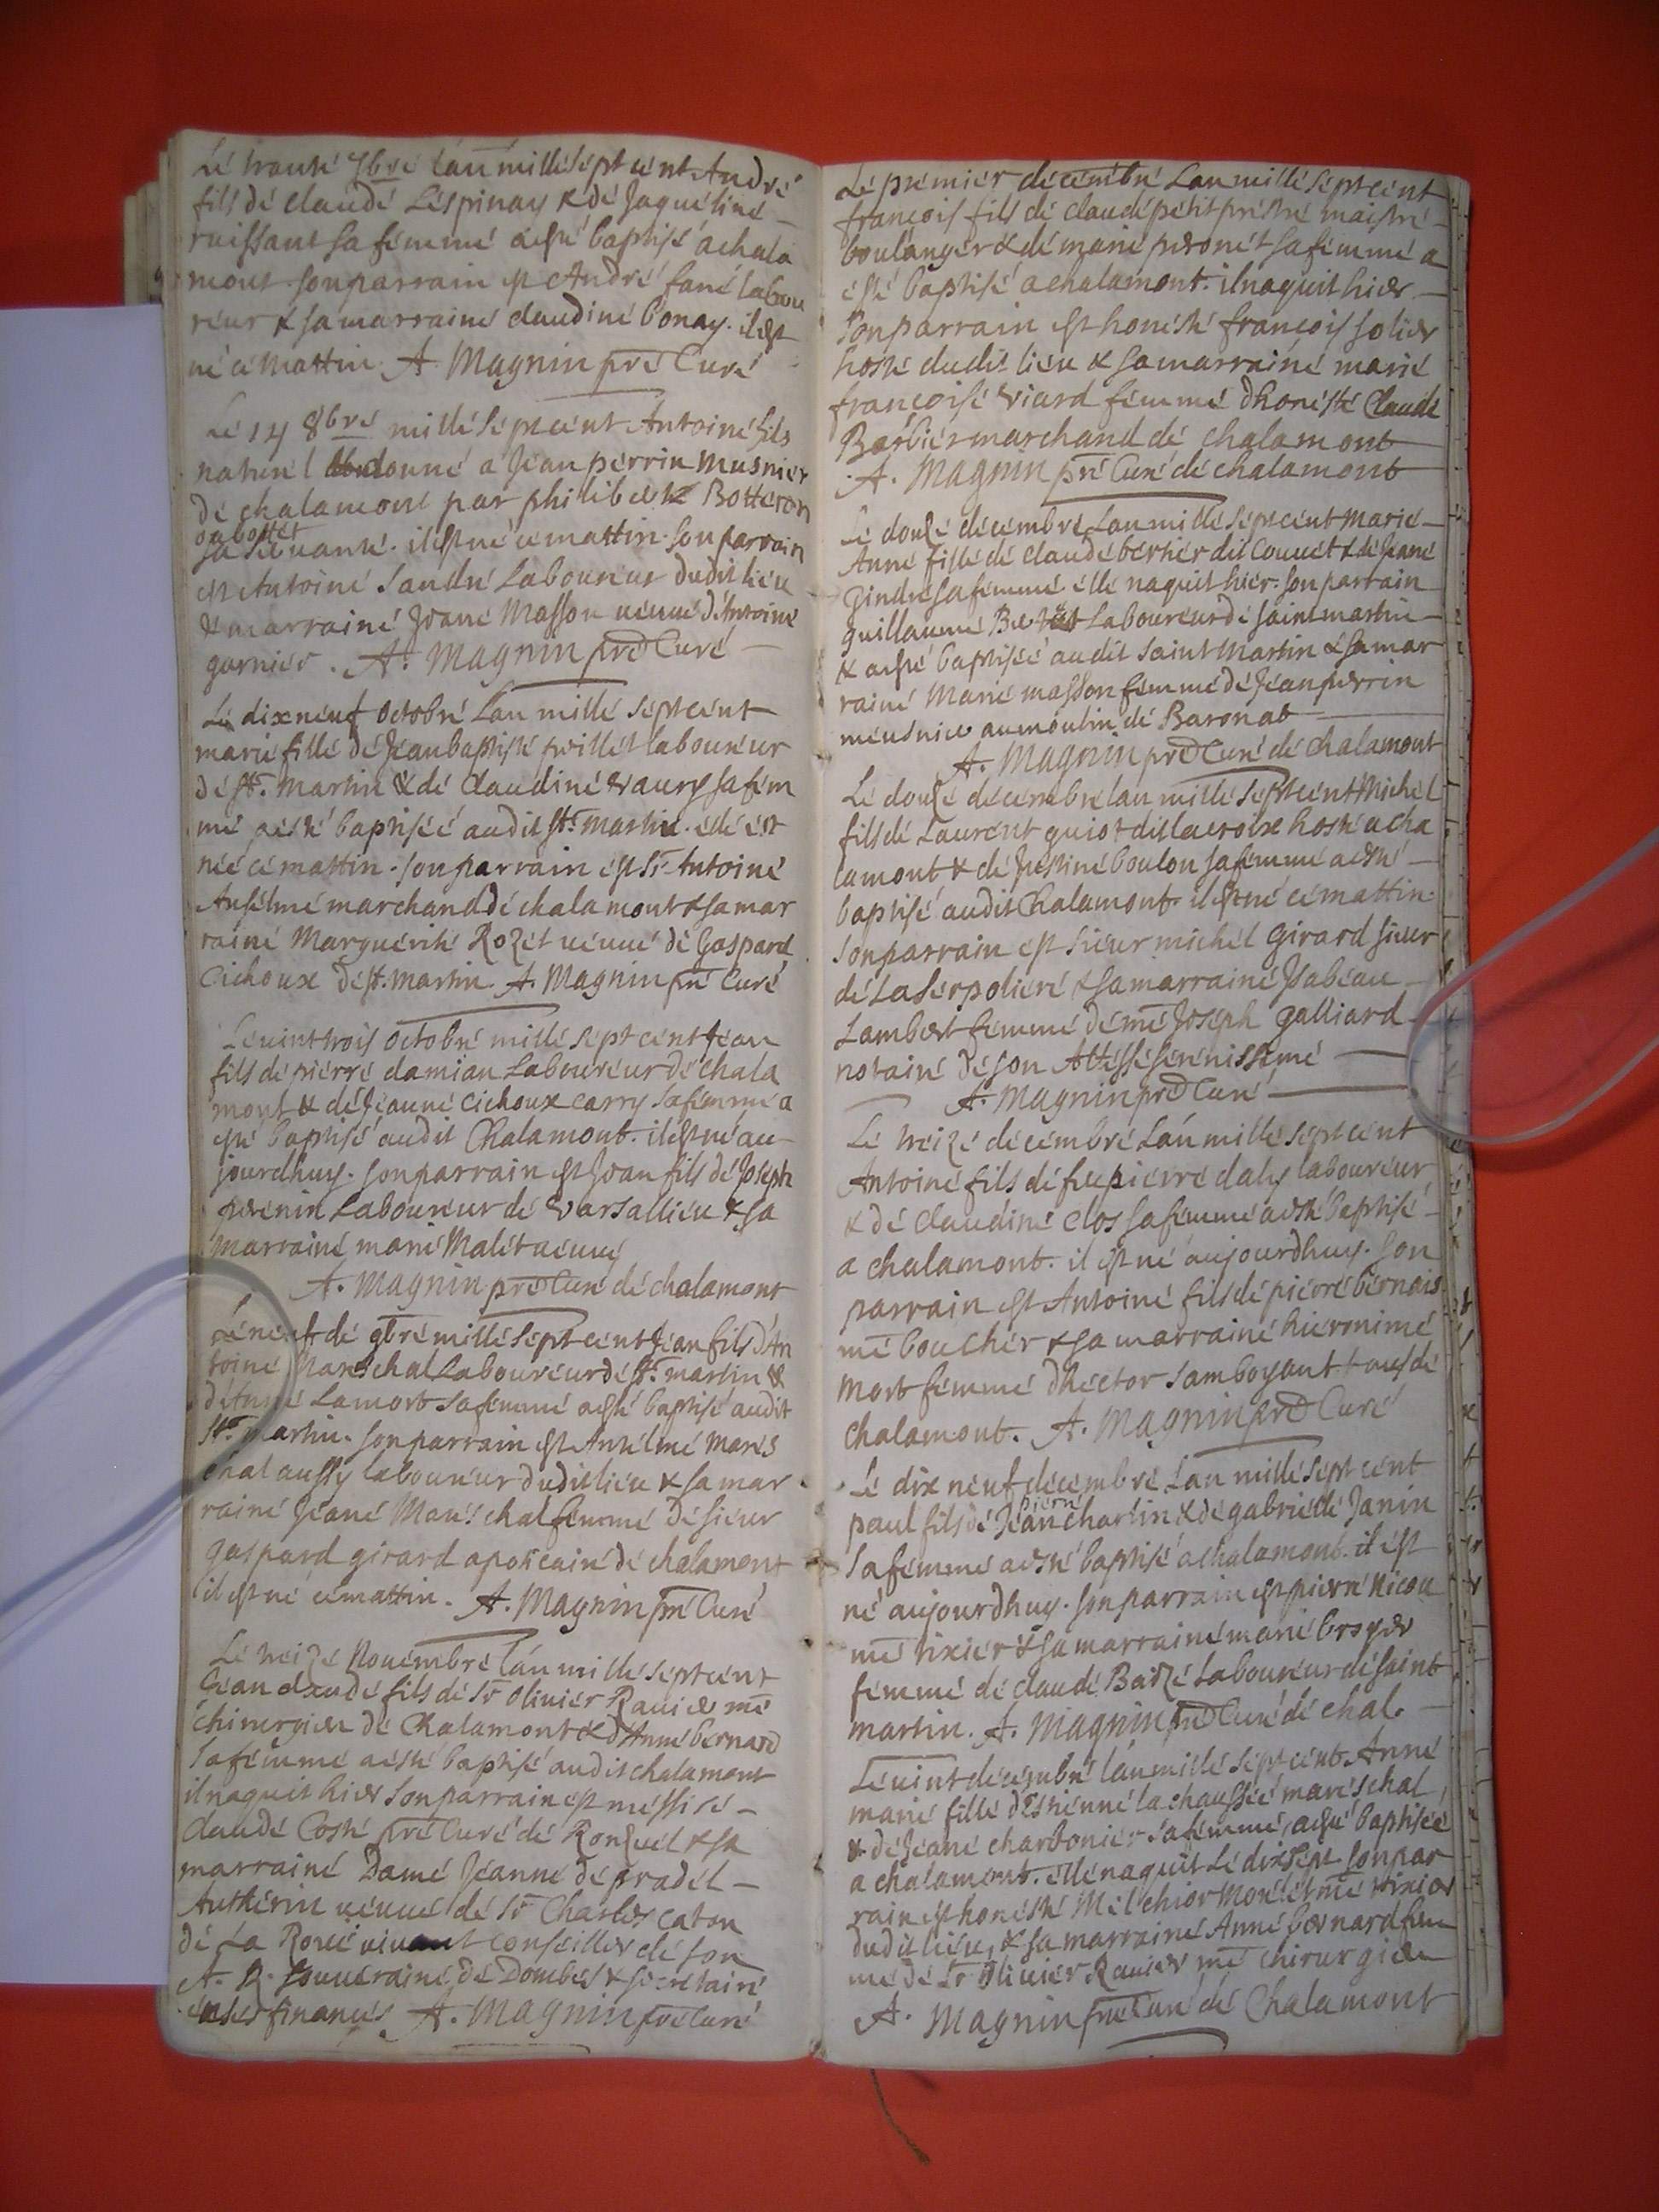 Le trante 7bre lan mille sept cent André
fils de claude Lespinay & de Jaqueline
ruissant sa femme a esté baptisé a chala
mont son parrain est André fané labou
reur & sa marraine claudine bonay. il est
né ce mattin A. Magnin pre Curé
Le 14 8bre mille sept cent Antoine fils
naturel donné a Jean perrin musnier
de chalamont par philiberte Botteron
ou bottet
sa servante. il est né ce mattin. son parrain
est Antoine Sandre Laboureur dudit lieu
& marraine Jeane Masson veuve d'Antoine
garnier. A. Magnin pre Curé
Le dixneuf octobre Lan mille sept cent
marie fille de Jean baptiste poillet laboureur
de st. martin & de Claudine vaury sa fem
me a esté baptisée audit st. martin. elle est
née ce mattin. son parrain est sr Antoine
Anselme marchand de chalamont & sa mar
raine Marguerite Rozet veuve de Gaspard
Cichoux de st. martin. A. Magnin pre Curé
Le vint trois octobre mille sept cent Jean
fils de pierre damian Laboureur de chala
mont & de Jeanne cichoux carry sa femme a
esté baptisé audit Chalamont. il est né au
jourdhuy. son parrain est Jean fils de Joseph
pvenin Laboureur de versallieu & sa
marraine marie Malet veuve
A. Magnin pre Curé de chalamont
Le neuf de 9bre mille sept cent Jean fils d'An
toine Mareschal Laboureur de st. martin &
d'Anne Lamort sa femme a esté baptisé audit
st. martin. son parrain est Anselme mares
chal aussy laboureur dudit lieu & sa mar
raine Jeane Mareschal femme de sieur
gaspard girard apoticaire de chalamont
il est né ce mattin. A. Magnin pre Curé
Le treize Novembre lan mille sept cent
Jean claude fils de sr Olivier Ravier me
chirurgien de Chalamont & d'Anne bernard
sa femme a esté baptisé audit chalamont
il naquit hier son parrain est messire
claude Coste pre Curé de Ronzuel & sa
marraine Dame Jeanne de pradel
Autherin veuve de sr Charles caton
de La Roue vivant conseiller de son
A. R. souveraine de Dombes & secretaire
en ses finances A. Magnin pre Curé
Le premier décembre Lan mille sept cent
françois fils de claude petit prestre maistre
boulanger & de marie peronet sa femme a
esté baptisé a chalamont. il naquit hier
son parrain est honeste françois solier
hoste dudit lieu & sa marraine marie
françoise viard femme dhoneste Claude
Barbier marchand de chalamont
A. Magnin pre Curé de chalamont
Le douze décembre Lan mille sept cent marie
Anne fille de claude bertier dit Couvet & de Jeane
gindre sa femme. elle naquit hier. son parrain
guillaume Laboureur de saint martin
& a esté baptisée audit saint Martin & sa mar
raine Marie masson femme de Jean perrin
meusnier au moulin de Baronat
A. Magnin pre Curé de Chalamont
Le douze décembre lan mille sept cent Michel
fils de Laurent guiot dit lacroix hoste a cha
lamont & de Justine boulon sa femme a esté
baptisé audit Chalamont il est né ce mattin.
son parrain est sieur michel Girard sieur
de La serpoliere & sa marraine Isabeau
Lambert femme de me Joseph galliard
notaire de son Altesse serenissime
A. Magnin pre Curé
Le treize décembre Lan mille sept cent
Antoine fils de feu pierre daly laboureur
& de claudine Clos sa femme a esté baptisé
a chalamont. il est né aujourdhuy. son
parrain est Antoine fils de pierre bernais
me boucher & sa marraine hieronime
mort femme dhector samboyant tous de
chalamont. A. Magnin pre Curé
Le dix neuf décembre Lan mille sept cent
pierre
paul fils de Jean charlin & de gabrielle Janin
sa femme a esté baptisé a chalamont. il est
né aujourdhuy. son parrain est pierre Nicou
me tixier & sa marraine marie broyer
femme de claude Baizé Laboureur de saint
martin. A. Magnin pre Curé de chal.
Le vint décembre lan mille sept cent. Anne
marie fille d'Estienne la chaussée mareschal
& de Jeane charbonier sa femme, a esté baptisée
a chalamont. elle naquit Le dixsept son par
rain est honeste Melchior Morelet me tixier
dudit lieu, & sa marraine Anne bernard fem
me de sr Olivier Ravier me chirurgien
A. Magnin pre Curé de Chalamont